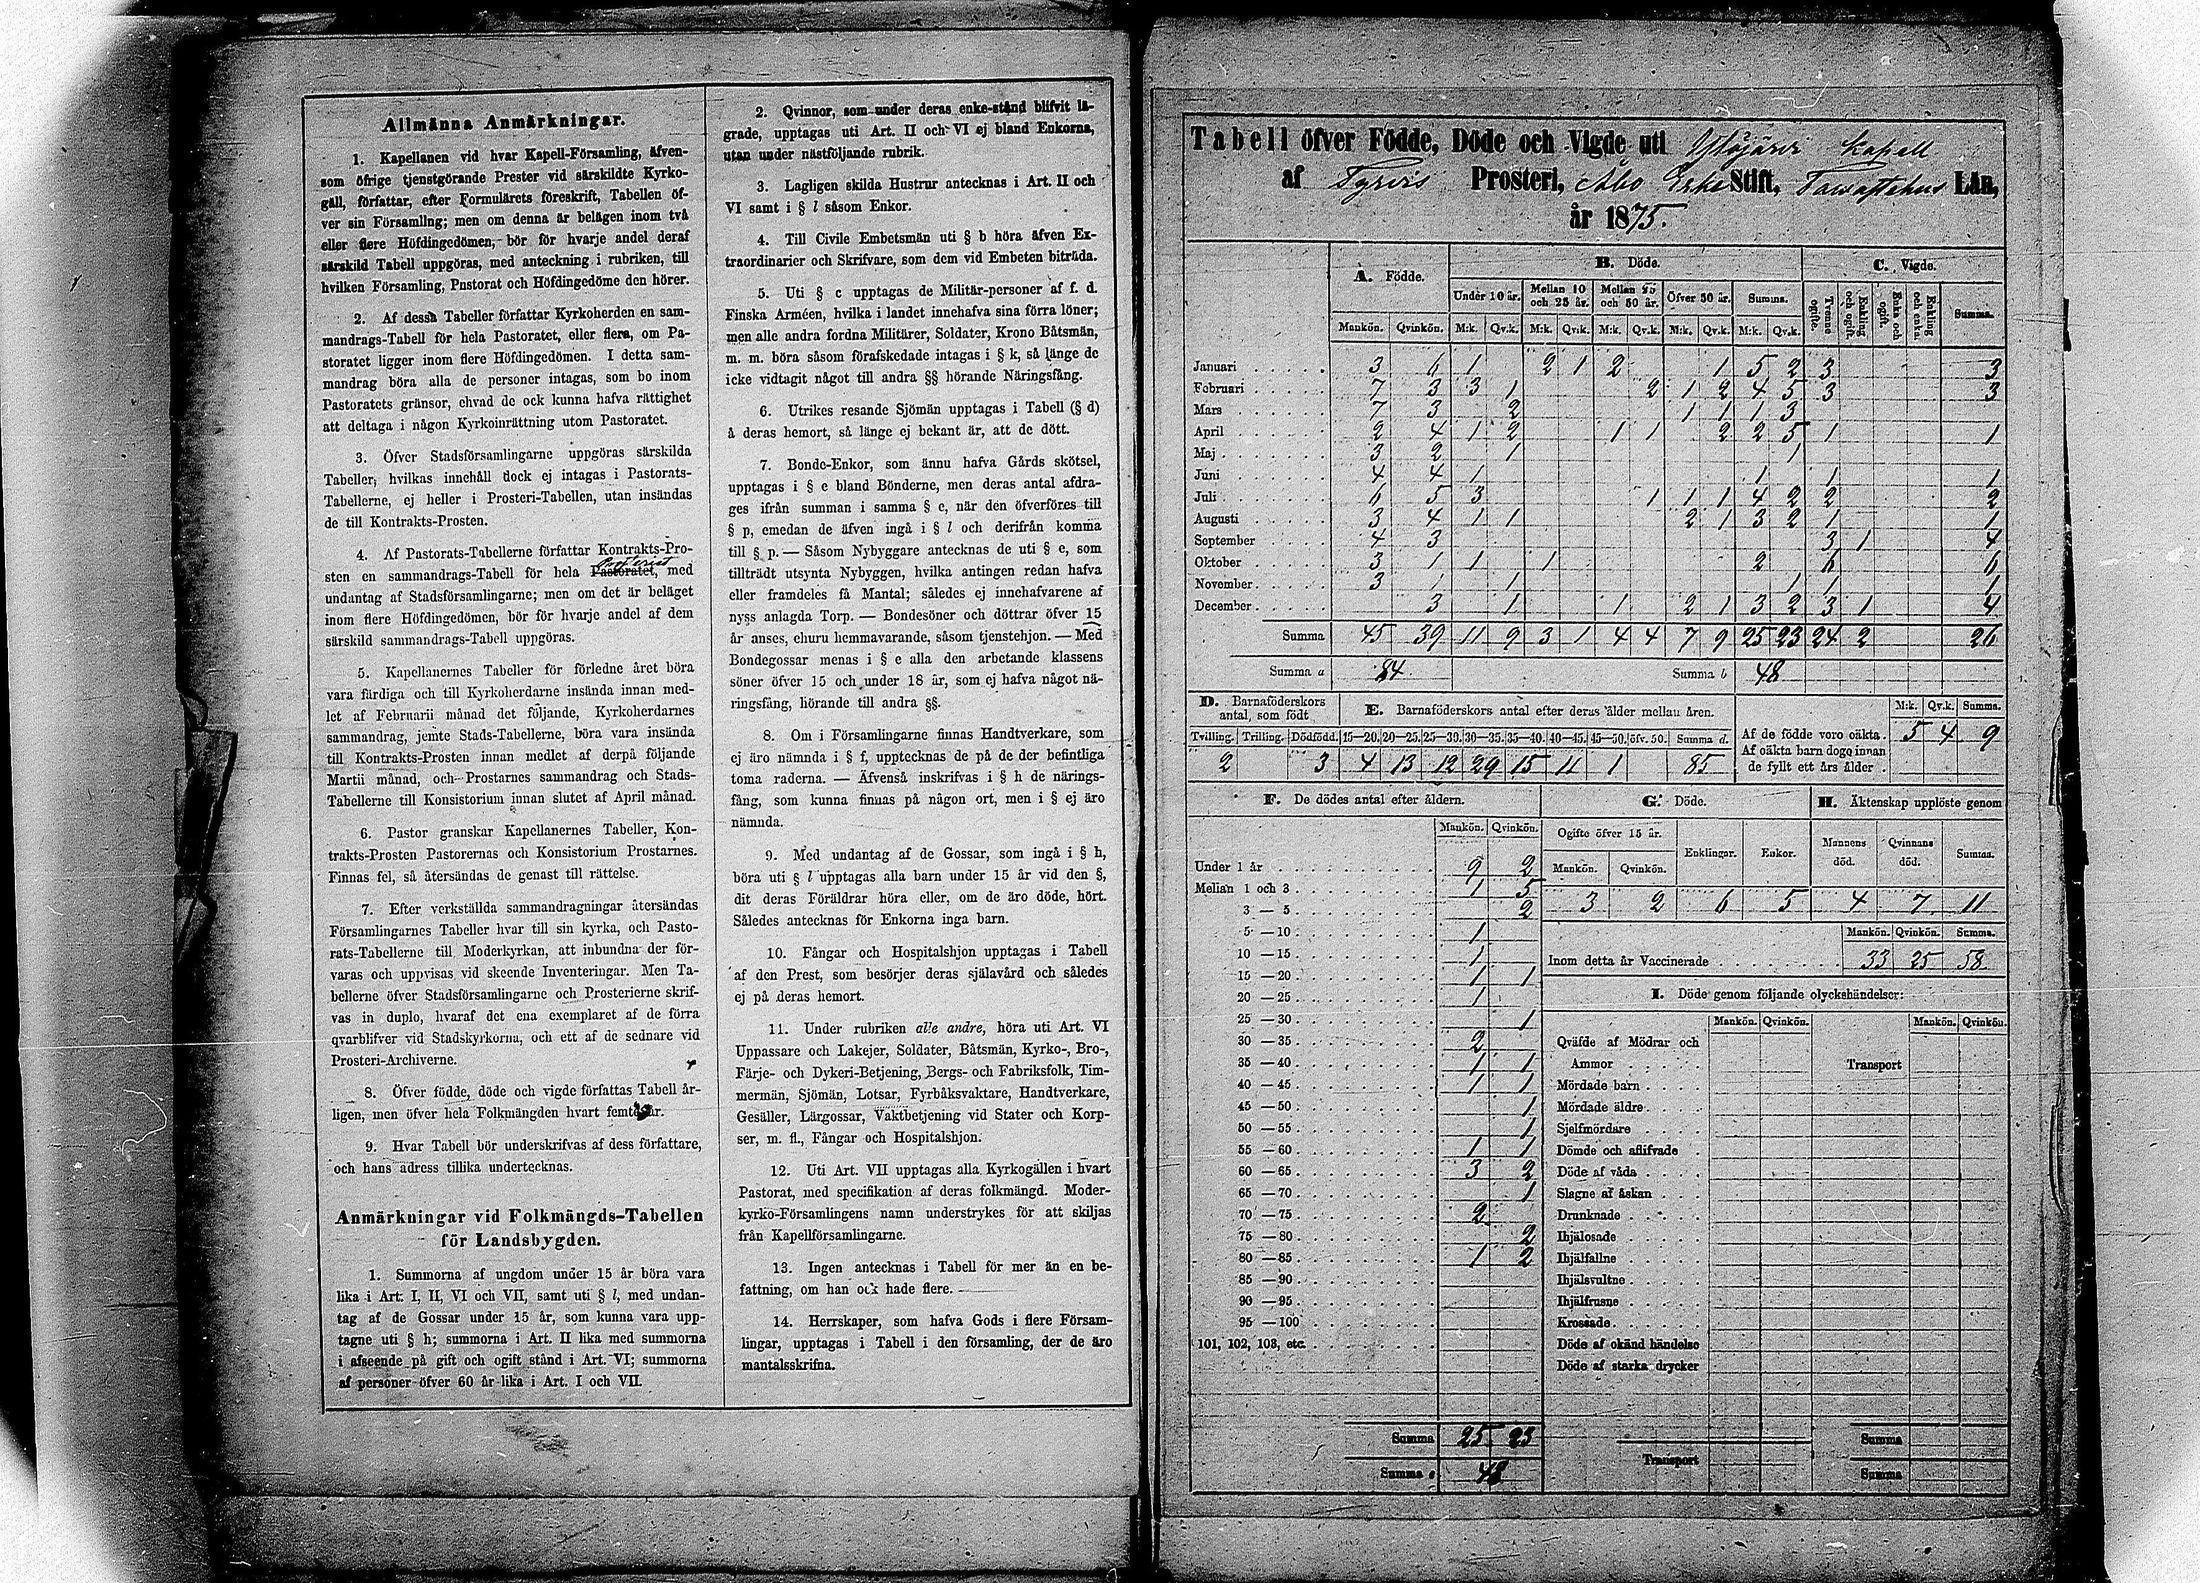 Allmänna Anmärkningar.
1. Kapellanen vid hvar Kapell-Församling, äfven-
som öfrige tjenstgörande Prester vid särskildte Kyrko-
gäll, författar, efter Formulärets föreskrift, Tabellen öf-
ver sin Församling; men om denna är belägen inom två
eller flere Höfdingedömen, bör för hvarje andel deraf
särskild Tabell uppgöras, med anteckning i rubriken, till
hvilken Församling, Pastorat och Höfdingedöme den hörer.
2. Af dessa Tabeller författar Kyrkoherden en sam-
mandrags-Tabell för hela Pastoratet, eller flera, om Pa-
storatet ligger inom flere Höfdingedömen. I detta sam-
mandrag böra alla de personer intagas, som bo inom
Pastoratets gränsor, ehvad de ock kunna hafva rättighet
att deltaga i någon Kyrkoinrättning utom Pastoratet.
3. Öfver Stadsförsamlingarne uppgöras särskilda
Tabeller, hvilkas innehåll dock ej intagas i Pastorats-
Tabellerne, ej heller i Prosteri-Tabellen, utan insändas
de till Kontrakts-Prosten.
4. Af Pastorats-Tabellerne författar Kontrakts-Pro-
sten en sammandrags-Tabell för hela Pastoratet, med
undantag af Stadsförsamlingarne; men om det är beläget
inom flere Höfdingedömen, bör för hvarje andel af dem
särskild sammandrags-Tabell uppgöras.
5. Kapellanernes Tabeller för förledne året böra
vara färdiga och till Kyrkoherdarne insända innan med-
let af Februarii månad det följande, Kyrkoherdarnes
sammandrag, jemte Stads-Tabellerne, böra vara insända
till Kontrakts-Prosten innan medlet af derpå följande
Martii månad, och Prostarnes sammandrag och Stads-
Tabellerne till Konsistorium innan slutet af April månad.
6. Pastor granskar Kapellanernes Tabeller, Kon-
trakts-Prosten Pastorernas och Konsistorium Prostarnes.
Finnas fel, så återsändas de genast till rättelse.
7. Efter verkställda sammandragningar återsändas
Församlingarnes Tabeller hvar till sin kyrka, och Pasto-
rats-Tabellerne till Moderkyrkan, att inbundna der för-
varas och uppvisas vid skeende Inventeringar. Men Ta-
bellerne öfver Stadsförsamlingarne och Prosterierne skrif-
vas in duplo, hvaraf det ena exemplaret af de förra
qvarblifver vid Stadskyrkorna, och ett af de sednare vid
Prosteri-Archiverne.
8. Öfver födde, döde och vigde författas Tabell år-
ligen, men öfver hela Folkmängden hvart femte år.
9. Hvar Tabell bör underskrifvas af dess författare,
och hans adress tillika undertecknas.
Anmärkningar vid Folkmängds-Tabellen
för Landsbygden.
1. Summorna af ungdom under 15 år böra vara
lika i Art. I, II, VI och VII, samt uti § l, med undan-
tag af de Gossar under 15 år, som kunna vara upp-
tagne uti § h; summorna i Art. II lika med summorna
i afseende på gift och ogift stånd i Art. VI; summorna
af personer öfver 60 år lika i Art. I och VII.
2. Qvinnor, som under deras enke-stånd blifvit lä-
grade, upptagas uti Art. II och VI ej bland Enkorna,
utan under nästföljande rubrik.
3. Lagligen skilda Hustrur antecknas i Art. II och
VI samt i § l såsom Enkor.
4. Till Civile Embetsmän uti § b höra äfven Ex-
traordinarier och Skrifvare, som dem vid Embeten biträda.
5. Uti § c upptagas de Militär-personer af f. d.
Finska Arméen, hvilka i landet innehafva sina förra löner;
men alle andra fordna Militärer, Soldater, Krono Båtsmän,
m. m. böra såsom förafskedade intagas i § k, så länge de
icke vidtagit något till andra §§ hörande Näringsfång.
6. Utrikes resande Sjömän upptagas i Tabell (§ d)
å deras hemort, så länge ej bekant är, att de dött.
7. Bonde-Enkor, som ännu hafva Gårds skötsel,
upptagas i § e bland Bönderne, men deras antal afdra-
ges ifrån summan i samma § e, när den öfverföres till
§ p, emedan de äfven ingå i § l och derifrån komma
till § p. — Såsom Nybyggare antecknas de uti § e, som
tillträdt utsynta Nybyggen, hvilka antingen redan hafva
eller framdeles få Mantal; således ej innehafvarene af
nyss anlagda Torp. — Bondesöner och döttrar öfver 15
år anses, ehuru hemmavarande, såsom tjenstehjon. — Med
Bondegossar menas i § e alla den arbetande klassens
söner öfver 15 och under 18 år, som ej hafva något nä-
ringsfång, hörande till andra §§.
8. Om i Församlingarne finnas Handtverkare, som
ej äro nämnda i § f, upptecknas de på de der befintliga
toma raderna. — Äfvenså inskrifvas i § h de närings-
fång, som kunna finnas på någon ort, men i § ej äro
nämnda.
9. Med undantag af de Gossar, som ingå i § h,
böra uti § l upptagas alla barn under 15 år vid den §,
dit deras Föräldrar höra eller, om de äro döde, hört.
Således antecknas för Enkorna inga barn.
10. Fångar och Hospitalshjon upptagas i Tabell
af den Prest, som besörjer deras själavård och således
ej på deras hemort.
11. Under rubriken alle andre, höra uti Art. VI
Uppassare och Lakejer, Soldater, Båtsmän, Kyrko-, Bro-,
Färje- och Dykeri-Betjening, Bergs- och Fabriksfolk, Tim-
mermän, Sjömän, Lotsar, Fyrbåksvaktare, Handtverkare,
Gesäller, Lärgossar, Vaktbetjening vid Stater och Korp-
ser, m. fl., Fångar och Hospitalshjon.
12. Uti Art. VII upptagas alla Kyrkogällen i hvart
Pastorat, med specifikation af deras folkmängd. Moder-
kyrko-Församlingens namn understrykes för att skiljas
från Kapellförsamlingarne.
13. Ingen antecknas i Tabell för mer än en be-
fattning, om han ock hade flere.
14. Herrskaper, som hafva Gods i flere Försam-
lingar, upptagas i Tabell i den församling, der de äro
mantalsskrifna.
Tabell öfver Födde, Döde och Vigde uti Ylöjärvi kapell
af Tyrvis Prosteri, Åbo Erke Stift, Tawastehus Län,
år 1875.
A. Födde. B. Döde. C. Vigde.
Under 10 år. Mellan 10 och 25 år. Mellan 25 och 50 år. Öfver 50 år. Summa. Tvenne ogifte. Enkling och ogift. Enka och ogift. Enkling och enka Summa.
Mankön. Qvinkön. M:k. Qv.k. M:k. Qv.k. M:k. Qv.k. M:k. Qv.k. M:k. Qv.k.
Januari 3 6 1 2 1 2 1 5 2 3 3
Februari 7 3 3 1 2 1 2 4 5 3 3
Mars 7 3 2 1 1 1 3
April 2 4 1 2 1 1 2 2 5 1 1
Maj 3 2 1 1
Juni 4 4 1 1 1 1
Juli 6 5 3 1 1 1 4 2 2 2
Augusti 3 4 1 1 2 1 3 2 1 1
September 4 3 3 1 4
Oktober 3 1 1 1 2 6 6
November 3 1 1 1 1 1
December 3 1 1 2 1 3 2 3 1 4
Summa 45 39 11 9 3 1 4 4 7 9 25 23 24 2 26
Summa a 84 Summa b 48
D. Barnaföderskors antal, som födt
Tvilling. Trilling. Dödfödd.
2 3
E. Barnaföderskors antal efter deras ålder mellan åren.
15—20. 20—25. 25—30. 30—35. 35—40. 40—45. 45—50. öfv. 50. Summa d.
4 13 12 29 15 11 1 85
M:k. Qv.k. Summa.
Af de födde voro oäkta. 5 4 9
Af oäkta barn dogo innan
de fyllt ett års ålder
F. De dödes antal efter åldern.
Mankön. Qvinkön.
Under 1 år 9 2
Mellan 1 och 3 1 5
3 — 5 2
5 — 10 1
10 — 15 1
15 — 20 1 1
20 — 25 1
25 — 30 1
30 — 35 2
35 — 40 1 1
40 — 45 1 1
45 — 50 1
50 — 55 1
55 — 60 1 1
60 — 65 3 2
65 — 70 1
70 — 75 2
75 — 80 2
80 — 85 1 2
85 — 90
90 — 95
95 — 100
101, 102, 103, etc.
Summa 25 23
Summa e 48
G. Döde.
Ogifte öfver 15 år. Enklingar. Enkor.
Mankön. Qvinkön.
3 2 6 5
H. Äktenskap upplöste genom
Mannens död. Qvinnans död. Summa.
4 7 11
Mankön. Qvinkön. Summa.
Inom detta år Vaccinerade 33 25 58
I. Döde genom följande olyckshändelser:
Mankön. Qvinkön. Mankön. Qvinkön.
Qväfde af Mödrar och
Ammor Transport
Mördade barn
Mördade äldre
Sjelfmördare
Dömde och aflifvade
Döde af våda
Slagne af åskan
Drunknade
Ihjälosade
Ihjälfallne
Ihjälsvultne
Ihjälfrusne
Krossade
Döde af okänd händelse
Döde af starka drycker
Summa
Transport
Summa